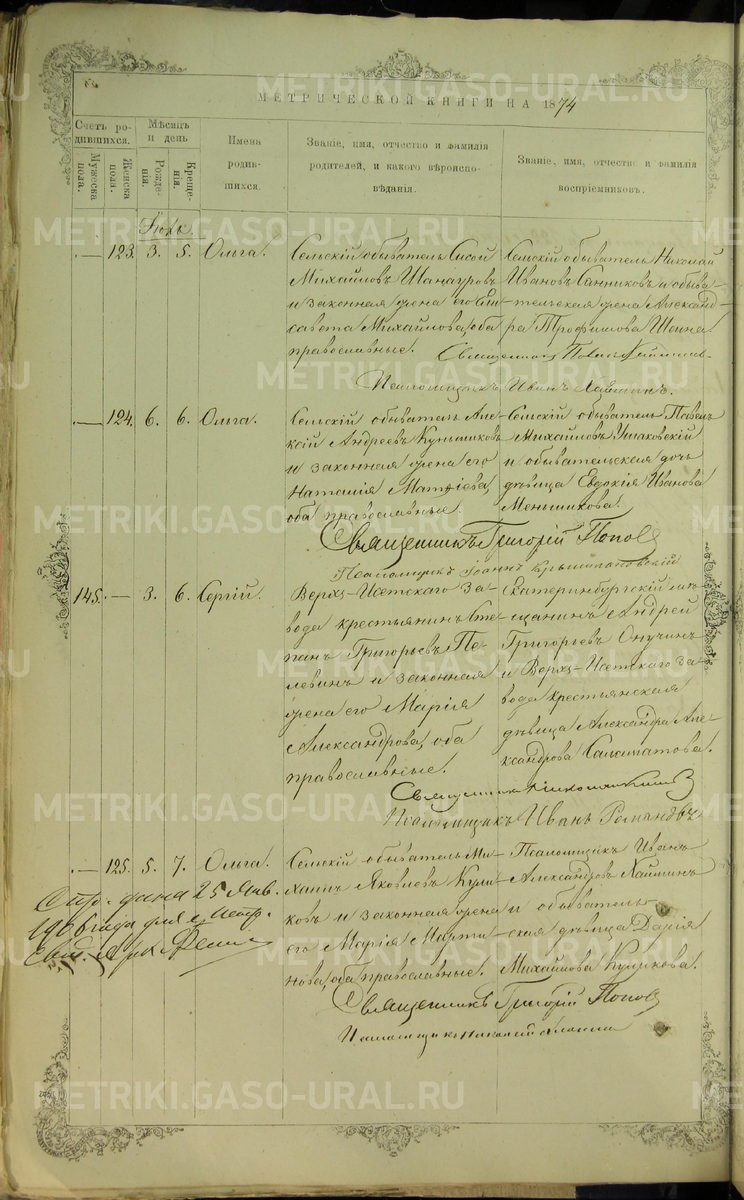 МЕТРИЧЕСКОЙ КНИГИ НА 1874
Счетъ ро-
дившихся.
Мужеска
пола.
Женска
пола.
Мѣсяцъ
и день
Рожде-
нія.
Креще-
нія.
Имена
родив-
шихся.
Званіе, имя, отчество и фамилія
родителей, и какого вѣроиспо-
вѣданія.
Званіе, имя, отчество и фамилія
воспріемниковъ.
Іюль.
— 123. 3. 5. Ольга.
Сельскій обыватель Сысой
Михайловъ Шанауровъ
и законная жена его Ели-
савета Михайлова, оба
православные.
Сельскій обыватель Николай
Ивановъ Санниковъ и обыва-
тельская жена Александ-
ра Трофимова Шеина.
Священникъ Павелъ
Псаломщикъ Иванъ Хайминъ.
— 124. 6. 6. Ольга.
Сельскій обыватель Але-
ксій Андреевъ Кунщиковъ
и законная жена его
Наталія Матѳіева,
оба православные.
Сельскій обыватель Павелъ
Михайловъ Ушаковскій
и обывательская дочь
дѣвица Евдокія Иванова
Меньшикова.
Священникъ Григорій Поповъ
Псаломщикъ Іоаннъ
145. — 3. 6. Сергій.
Верхъ-Исетскаго за-
вода крестьянинъ Сте-
панъ Григорьевъ Пе-
левинъ и законная
жена его Марія
Александрова, оба
православные.
Екатеринбургскій мѣ-
щанинъ Андрей
Григорьевъ Онучинъ
и Верхъ-Исетскаго за-
вода крестьянская
дѣвица Александра Але-
ксандрова Саламатова.
Священникъ
Псаломщикъ Иванъ Романовъ
— 125. 5. 7. Ольга.
Сельскій обыватель Ми-
хаилъ Яковлевъ Кули-
ковъ и законная жена
его Марія Марти-
нова, оба православные.
Псаломщикъ Иванъ
Александровъ Хайминъ
и обыватель-
ская дѣвица Дарія
Михайлова Куликова.
Священникъ Григорій Поповъ
Псаломщикъ
дана 25 Янв.
1906 года
METRIKI.GASO-URAL.RU